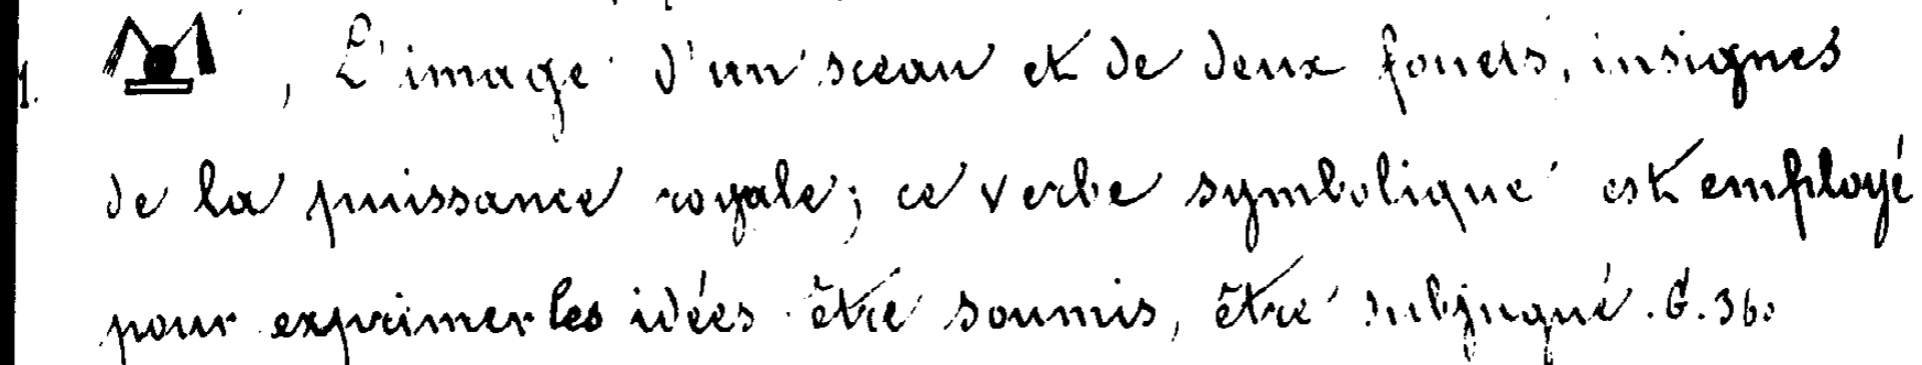 1. , L'image d'un sceau et de deux fouets, insignes
de la puissance royale; ce verbe symbolique est employé
pour exprimer les idées être soumis, être subjugué. G. 360